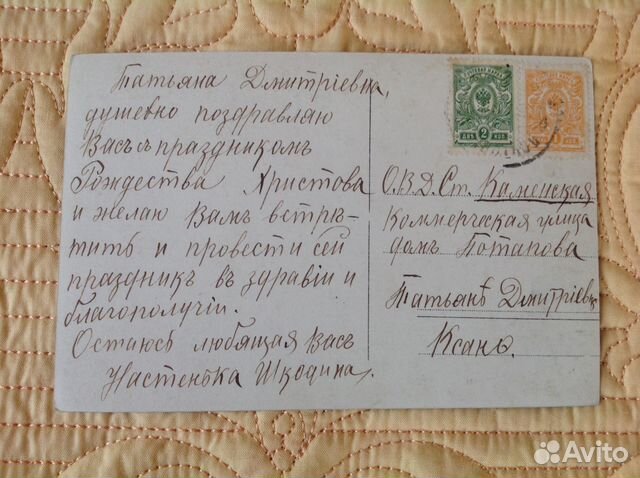 Татьяна Дмитріевна,
душевно поздравляю
Васъ съ праздникомъ
Рождества Христова
и желаю Вамъ встрѣ-
тить и провести сей
праздникъ въ здравіи и
благополучіи.
Остаюсь любящая Васъ
Настенька Шкодина.
ДВѢ 2 КОП.
О.В.Д. Ст. Каменская
Коммерческая улица
домъ Потапова
Татьянѣ Дмитріевнѣ
Ксанъ.
Avito